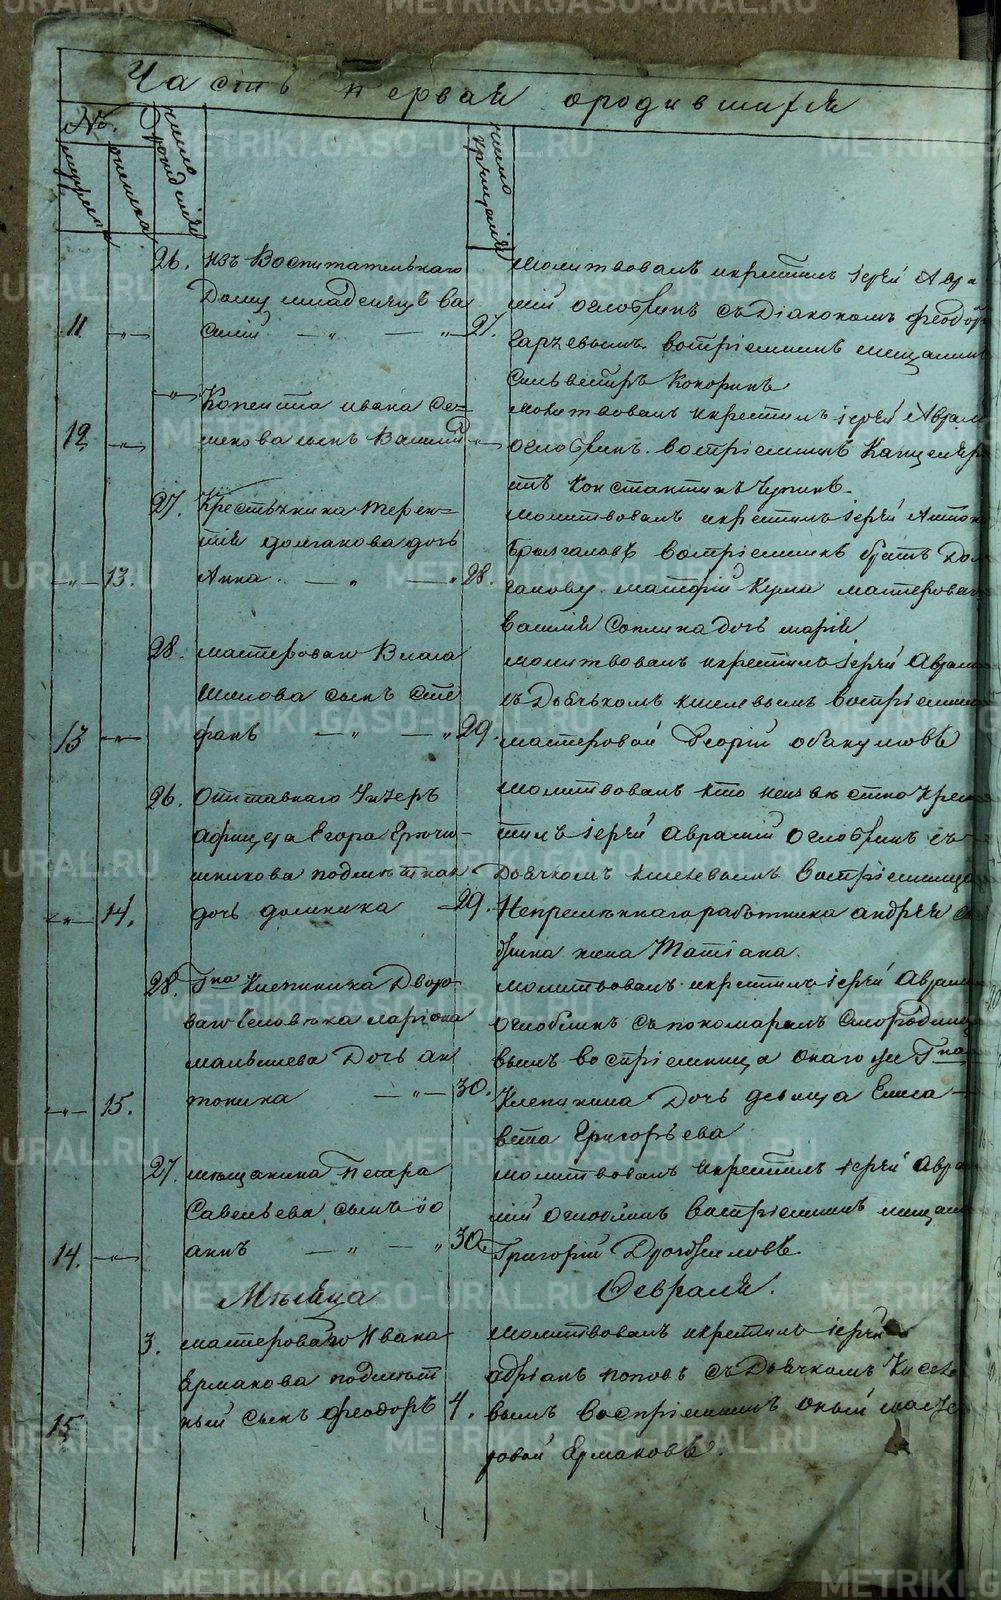 Часть первая ородившихся
№
мужеска
женска
число рождения
число крещения
26. изъ Воспитательнаго
Дому младенецъ Ва
11. силій 27.
молитвовалъ икрестилъ іерей Авра
мій Оглоблинъ съ Діакономъ Феодо
воспріемникъ мещанинъ
Сильвестръ Кокоринъ
Копеиста ивана Се-
12. сынъ Василій
молитвовалъ икрестилъ іерей Аврам
Оглоблинъ. воспріемникъ Канцеляри
стъ Константинъ Чупинъ.
27. Крестьянина терен-
тія долгакова дочь
13. Анна. 28.
молитвовалъ икрестилъ іерей Антон
воспріемникъ братъ Дол
гакову Кума мастероваго
василія дочь марія
28. мастероваго Власа
Шилова сынъ Сте
13 фанъ 29.
молитвовалъ икрестилъ іерей Аврам
съ Дьячкомъ Киселевымъ воспріемникъ
мастеровой Георгій обакумовъ
26. Отставнаго Унтеръ
Афицера Егора
подметная
14. дочь домника 29.
молитвовалъ кто неизвестно Крес
тилъ іерей аврамій Оглоблинъ съ
Дьячкомъ Киселевымъ воспріемница
Непременнаго работника андрея
жена Татіана.
28. Гна Клепинина Дворо-
ваго человека ларіона
малышева Дочь ан
15. тонина 30.
молитвовалъ икрестилъ іерей Аврами
Оглоблинъ съ пономаремъ Смородинце
вымъ воспріемница онагоже Гна
Клепинина Дочь девица Елиса-
вета Григорьева
27. мещанина Петра
Савельева сынъ іо
14. аннъ 30.
молитвовалъ икрестилъ іерей Авра
мій Оглоблинъ воспріемникъ мещан
Григорій
Месяца Февраля.
3. мастероваго Ивана
Ермакова подмет
15 ный сынъ феодоръ 4.
молитвовалъ икрестилъ іерей
адріанъ поповъ съ Дьячкомъ Киселе
вымъ воспріемникъ оный масте
ровой Ермаковъ.
METRIKI.GASO-URAL.RU